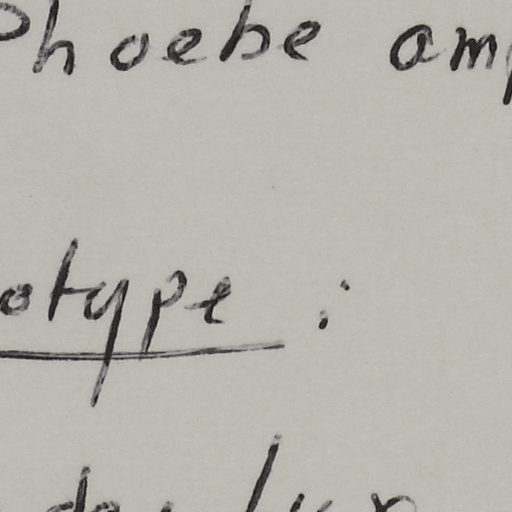 Phoebe am
otype :